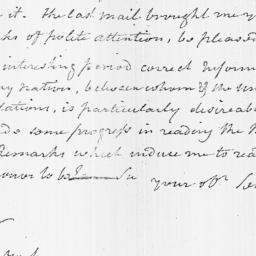 it. The last mail brought me y
ks of polite attention, be pleased
interesting period correct inform
ny nation, between whom & the Un
tations, is particularly desireable
do some progress in reading the
Remarks which induse me to rea
onour to be &c Sir your obt. Ser